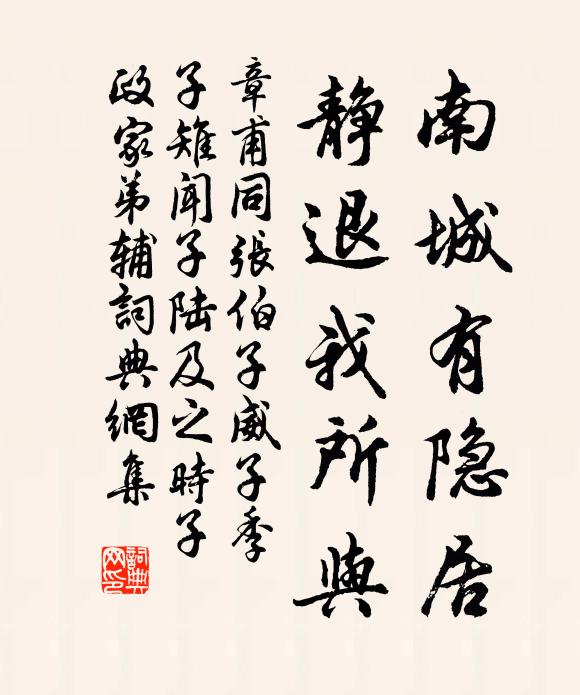 南城有隐居
静退我所與
章甫同張伯子威子季
子雉闻子陆及之時子
政家弟辅詞典網集
詞典网印